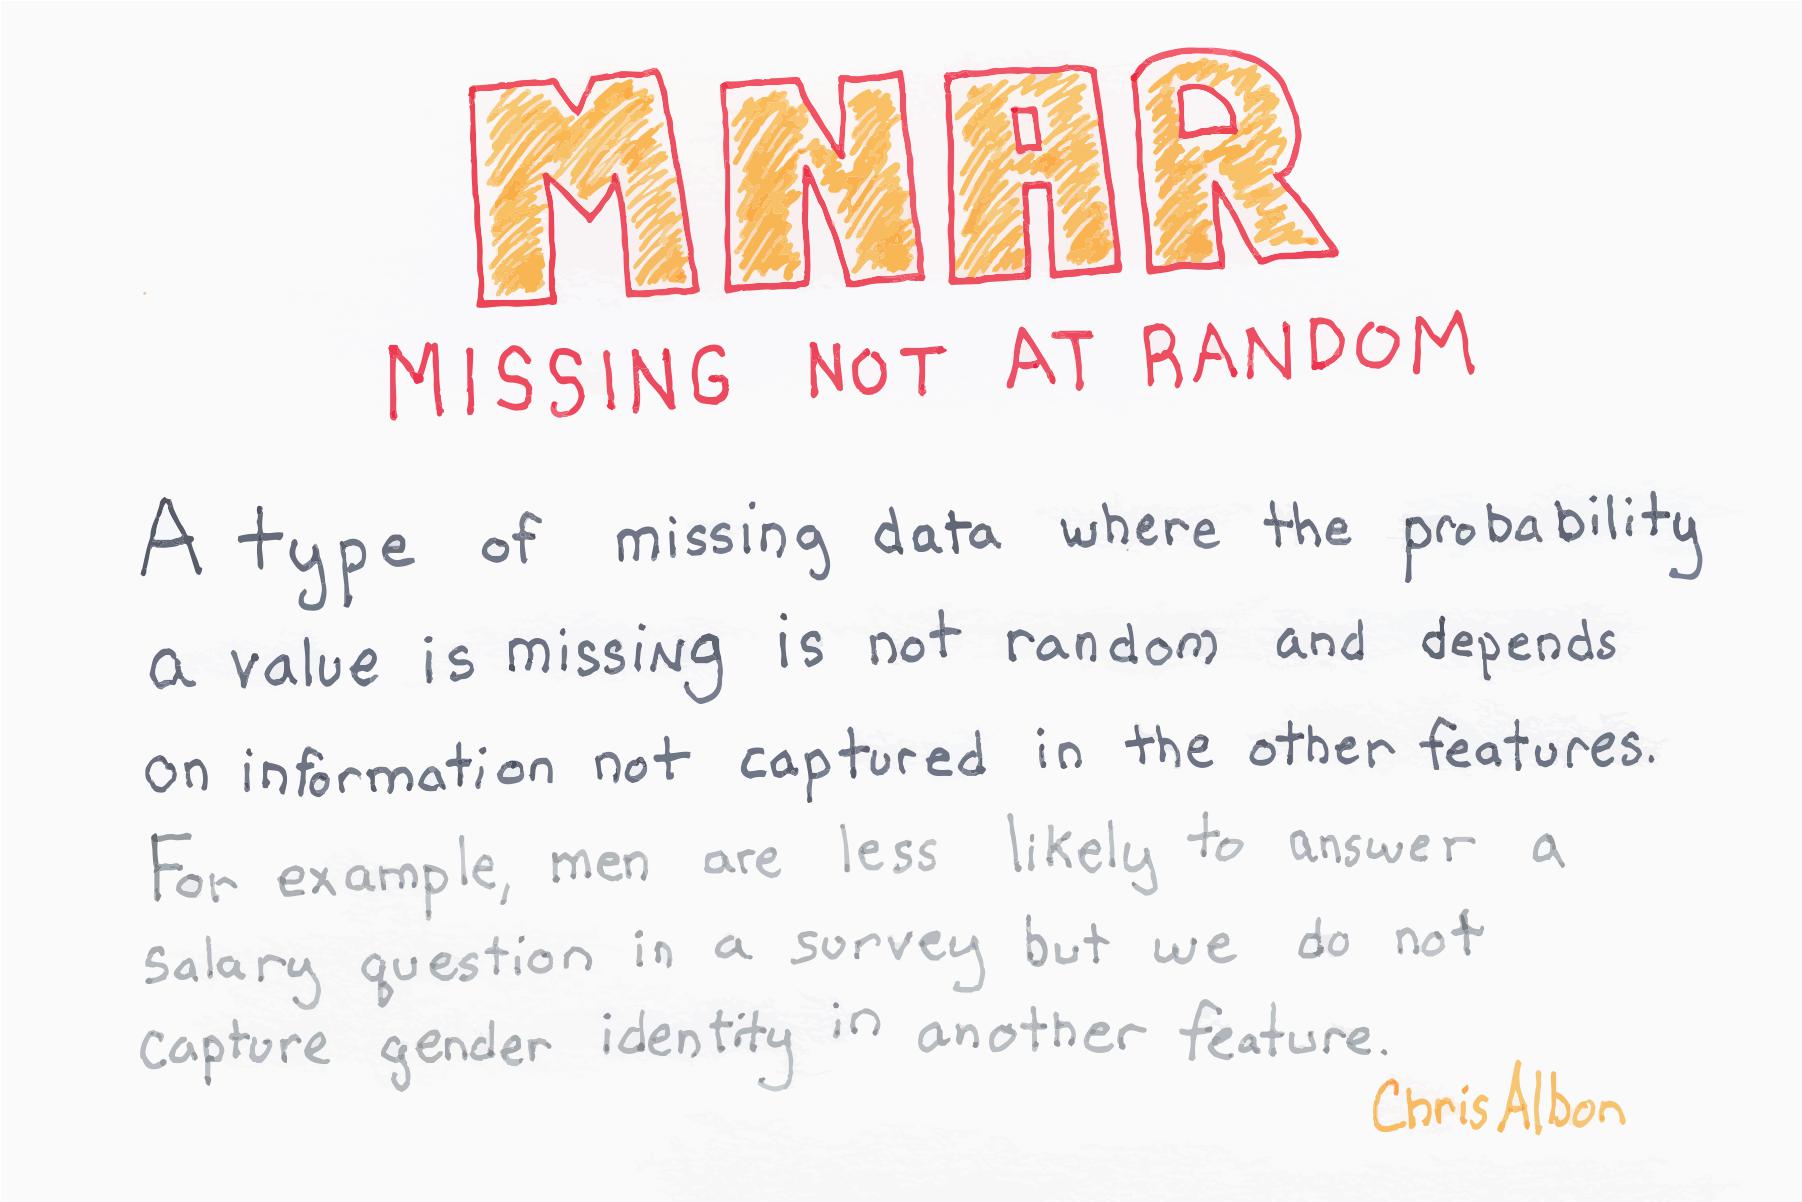 MNAR
MISSING NOT AT RANDOM
A type of missing data where the probability
a value is missing is not random and depends
on information not captured in the other features.
For example, men are less likely to answer a
salary question in a survey but we do not
capture gender identity in another feature.
Chris Albon